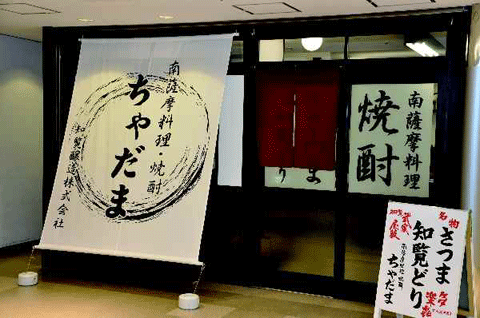 南薩摩料理・焼酎
ちゃだま
知覧醸造株式会社
南薩摩料理
焼酎
名物
さつま
知覧どり
武家
屋敷
ちゃだま